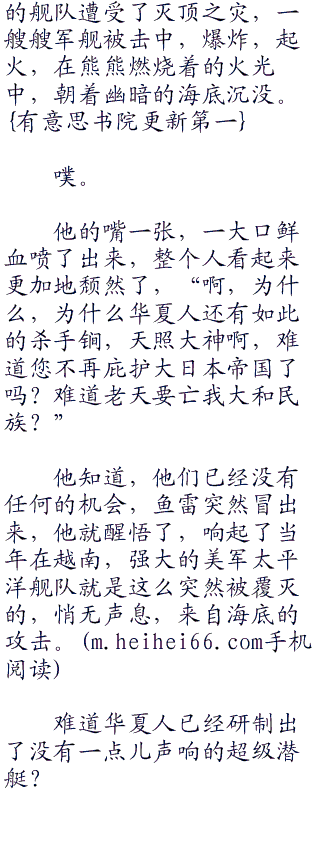 的舰队遭受了灭顶之灾，一
艘艘军舰被击中，爆炸，起
火，在熊熊燃烧着的火光
中，朝着幽暗的海底沉没。
{有意思书院更新第一}
噗。
他的嘴一张，一大口鲜
血喷了出来，整个人看起来
更加地颓然了，“啊，为什
么，为什么华夏人还有如此
的杀手锏，天照大神啊，难
道您不再庇护大日本帝国了
吗？难道老天要亡我大和民
族？”
他知道，他们已经没有
任何的机会，鱼雷突然冒出
来，他就醒悟了，响起了当
年在越南，强大的美军太平
洋舰队就是这么突然被覆灭
的，悄无声息，来自海底的
攻击。(m.heihei66.com手机
阅读)
难道华夏人已经研制出
了没有一点儿声响的超级潜
艇？